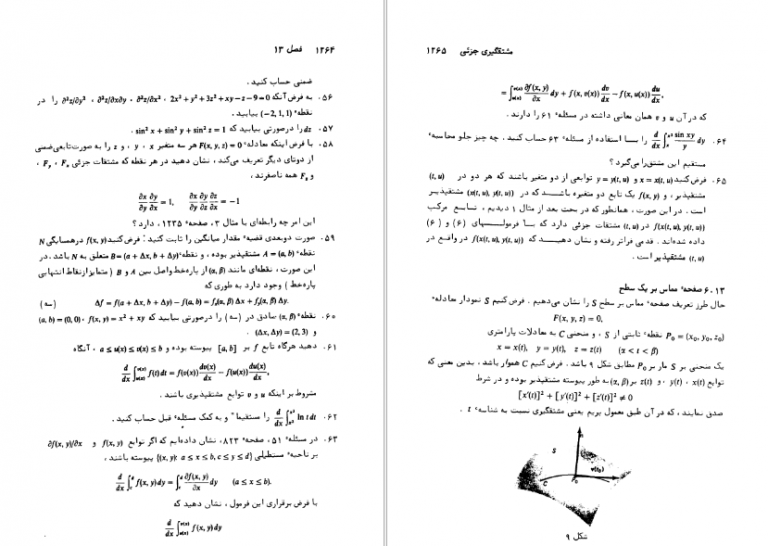 ۱۲۶۴ فصل ۱۳
ضمنی حساب کنید .
۵۶. به فرض آنکه 2x² + y² + 3z² + xy − z − 9 = 0 ، ∂²z/∂x² ، ∂²z/∂x∂y ، ∂²z/∂y² را در
نقطهٔ (−2, 1, 1) بیابید .
۵۷. dz را درصورتی بیابید که sin² x + sin² y + sin² z = 1 .
۵۸. با فرض اینکه معادلهٔ F(x, y, z) = 0 هر سه متغیر x ، y ، و z را به صورت تابعی ضمنی
از دوتای دیگر تعریف می‌کند ، نشان دهید در هر نقطه که مشتقات جزئی Fₓ ، F_y ،
و F_z همه ناصفرند ،
∂x/∂y ∂y/∂x = 1, ∂x/∂y ∂y/∂z ∂z/∂x = −1
این امر چه رابطه‌ای با مثال ۳ ، صفحهٔ ۱۲۳۵ ، دارد ؟
۵۹. صورت دوبعدی قضیهٔ مقدار میانگین را ثابت کنید : فرض کنید f(x, y) در همسایگی N
نقطهٔ A = (a, b) مشتقپذیر بوده ، و نقطهٔ B = (a + Δx, b + Δy) متعلق به N باشد . در
این صورت ، نقطه‌ای مانند (α, β) از پاره‌خط واصل بین A و B (متمایز از نقاط انتهایی
پاره‌خط ) وجود دارد به طوری که
(سه) Δf = f(a + Δx, b + Δy) − f(a, b) = fₓ(α, β) Δx + f_y(α, β) Δy.
۶۰. نقطهٔ (α, β) صادق در (سه) را درصورتی بیابید که f(x, y) = x² + xy ، (a, b) = (0, 0)
و (Δx, Δy) = (2, 3) .
۶۱. دهید هرگاه تابع f بر [a, b] پیوسته بوده و a ≤ u(x) ≤ v(x) ≤ b ، آنگاه
d/dx ∫_{u(x)}^{v(x)} f(t) dt = f(v(x)) dv(x)/dx − f(u(x)) du(x)/dx,
مشروط بر اینکه u و v توابع مشتقپذیری باشند .
۶۲. d/dx ∫ ln t dt را مستقیما" و به کمک مسئلهٔ قبل حساب کنید .
۶۳. در مسئلهٔ ۵۱ ، صفحهٔ ۸۲۳ ، نشان داده‌ایم که اگر توابع f(x, y) و ∂f(x, y)/∂x
بر ناحیهٔ مستطیلی {(x, y): a ≤ x ≤ b, c ≤ y ≤ d} پیوسته باشند ،
d/dx ∫_c^d f(x, y) dy = ∫_c^d ∂f(x, y)/∂x dy (a ≤ x ≤ b).
با فرض برقراری این فرمول ، نشان دهید که
d/dx ∫_{u(x)}^{v(x)} f(x, y) dy
مشتقگیری جزئی ۱۲۶۵
= ∫_{u(x)}^{v(x)} ∂f(x, y)/∂x dy + f(x, v(x)) dv/dx − f(x, u(x)) du/dx,
که در آن u و v همان معانی داشته در مسئلهٔ ۶۱ را دارند .
۶۴. d/dx ∫ sin xy / y dy را با استفاده از مسئلهٔ ۶۳ حساب کنید . چه چیز جلو محاسبهٔ
مستقیم این مشتق را می‌گیرد ؟
۶۵. فرض کنید x = x(t, u) و y = y(t, u) توابعی از دو متغیر باشند که هر دو در (t, u)
مشتقپذیر ، و f(x, y) یک تابع دو متغیره باشد که در (x(t, u), y(t, u)) مشتقپذیر
است . در این صورت ، همانطور که در بحث بعد از مثال ۱ دیدیم ، تابع مرکب
f(x(t, u), y(t, u)) در (t, u) مشتقات جزئی دارد که با فرمولهای (۶) و (۶)
داده شده‌اند . قدمی فراتر رفته و نشان دهید که f(x(t, u), y(t, u)) در واقع در
(t, u) مشتقپذیر است .
۶.۱۳ صفحهٔ مماس بر یک سطح
حال طرز تعریف صفحهٔ مماس بر سطح S را نشان می‌دهیم . فرض کنیم S نمودار معادلهٔ
F(x, y, z) = 0,
P₀ = (x₀, y₀, z₀) نقطهٔ ثابتی از S ، و منحنی C به معادلات پارامتری
x = x(t), y = y(t), z = z(t) (α < t < β)
یک منحنی بر S مار بر P₀ مطابق شکل ۹ باشد . فرض کنیم C هموار باشد . بدین معنی که
توابع x(t) ، y(t) ، و z(t) بر (α, β) به طور پیوسته مشتقپذیر بوده و در شرط
[x′(t)]² + [y′(t)]² + [z′(t)]² ≠ 0
صدق نمایند ، که در آن طبق معمول پریم یعنی مشتقگیری نسبت به شناسهٔ t .
n
S
v(t₀)
C
P₀
شکل ۹